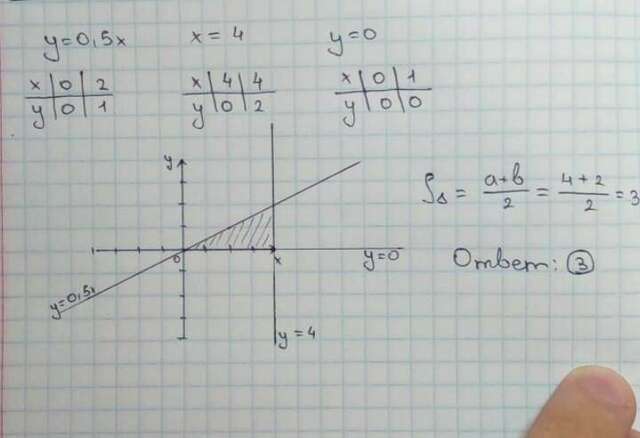 y=0,5x x=4 y=0
x 0 2
y 0 1
x 4 4
y 0 2
x 0 1
y 0 0
y
0
x
y=0
y=0,5x
y=4
S△ = a+b/2 = 4+2/2 = 3
Ответ: 3